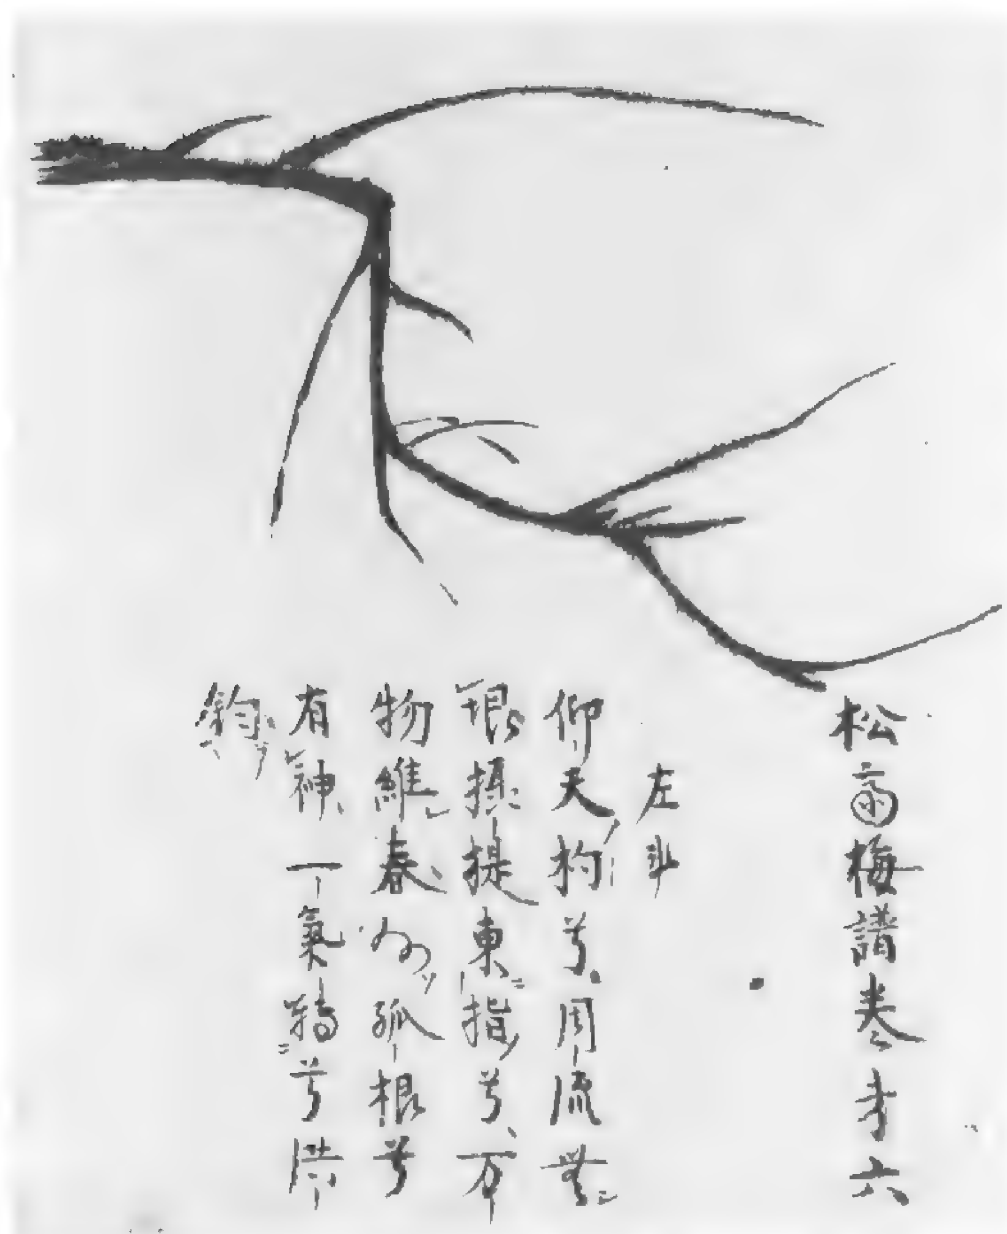 松斎梅譜巻才六
左斗
仰天杓兮周流無
垠摂提東指兮万
物維春 孤根兮
有神一氣轉兮洪
鈞